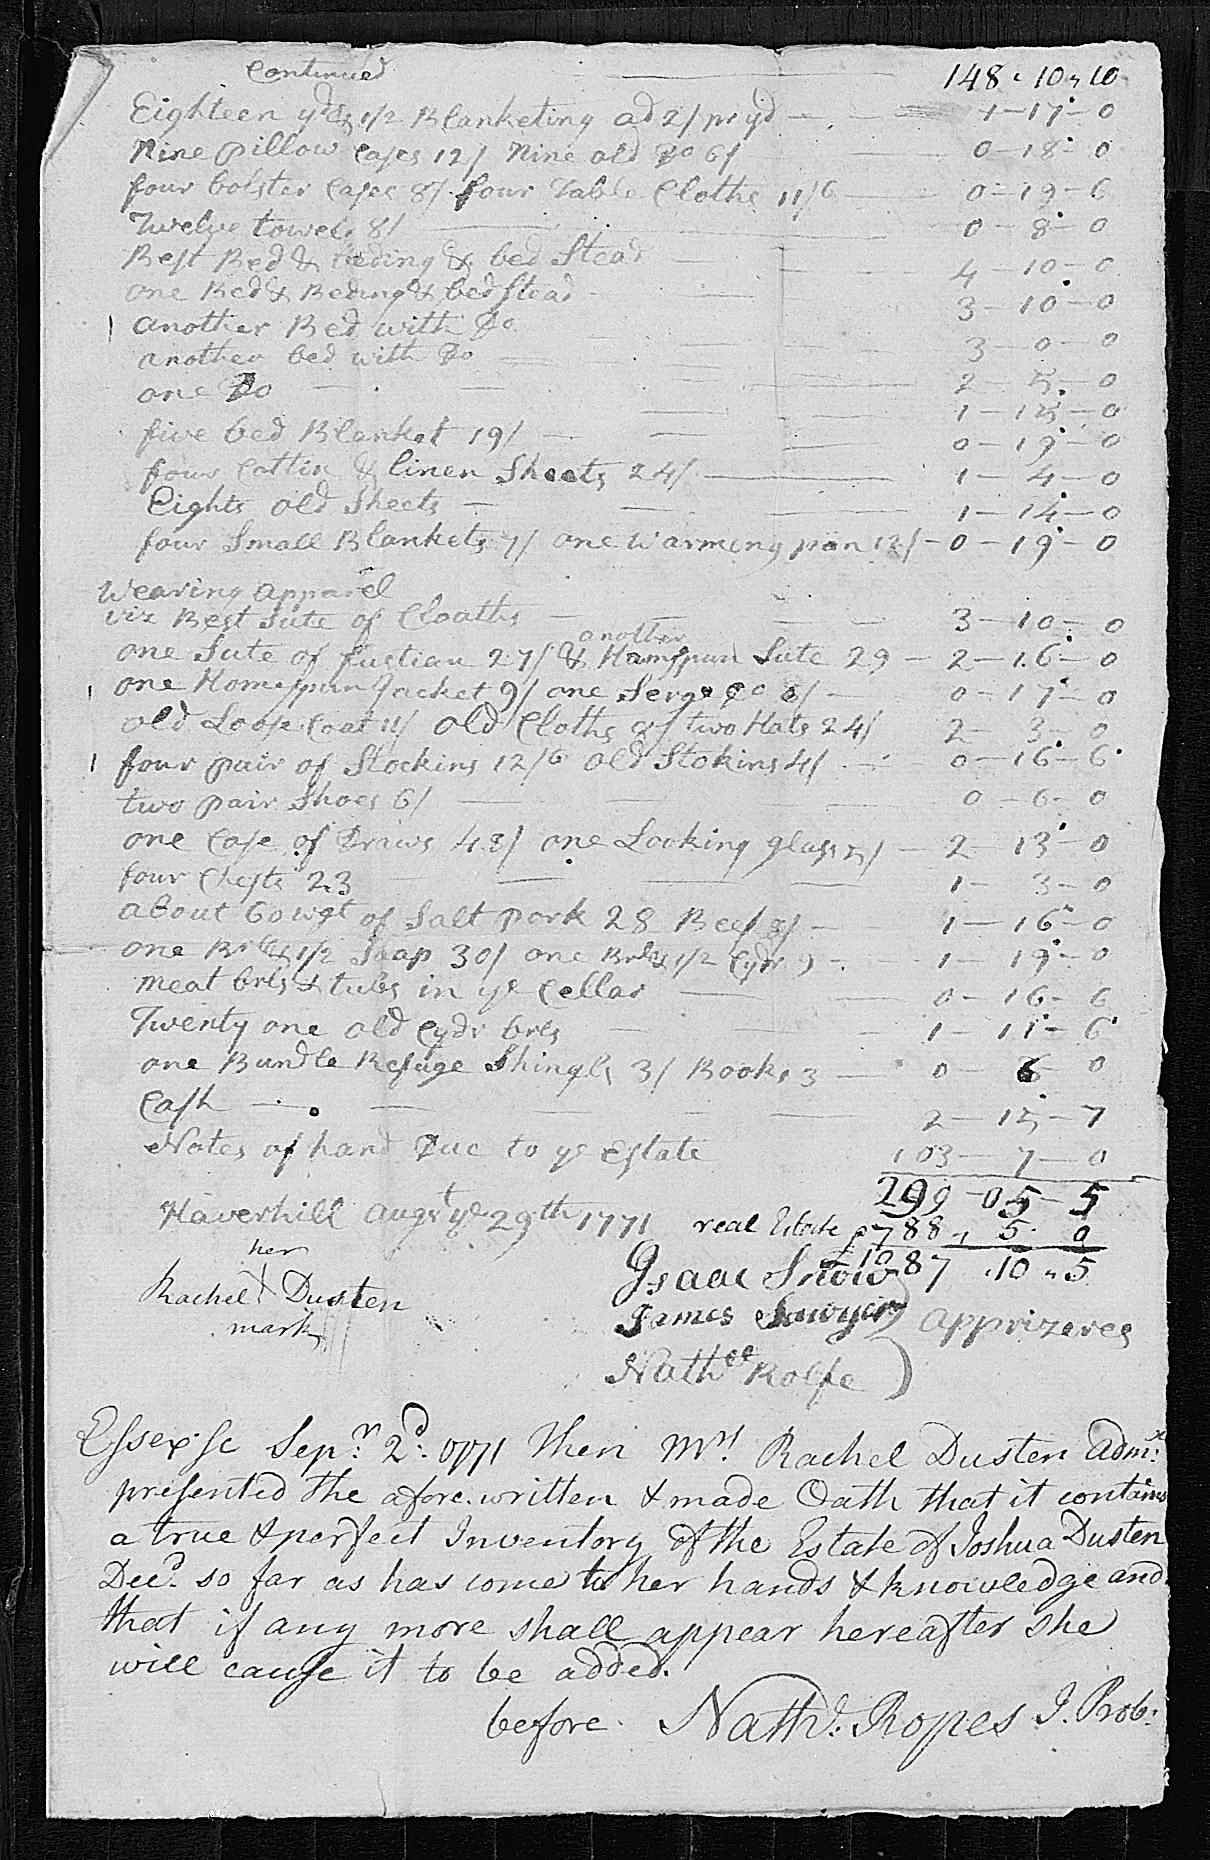 Continued — 148 „ 10 „ 10
Eighteen yds & 1/2 Blanketing ad 2/ pr yd — 1 — 17 — 0
Nine pillow Cases 12/ Nine old Do 6/ — 0 — 18 — 0
four bolster Cases 8/ four Table Cloths 11/6 — 0 — 19 — 6
Twelve towels 8/ — 0 — 8 — 0
Best Bed & beding & bed Stead — 4 — 10 — 0
one Bed & Beding & bedstead — 3 — 10 — 0
another Bed with Do — 3 — 0 — 0
another bed with Do — 2 — 5 — 0
one Do — 1 — 15 — 0
five bed Blanket 19/ — 0 — 19 — 0
four Cottin & linen Sheets 24/ — 1 — 4 — 0
Eights old Sheets — 1 — 14 — 0
four Small Blankets 7/ one Warming pan 12/ — 0 — 19 — 0
Wearing Apparel
viz Best Sute of Cloaths — 3 — 10 — 0
one Sute of fustian 27/ & another Hamspun Sute 29 — 2 — 16 — 0
one Homespun Jacket 9/ one Serge Do 8/ — 0 — 17 — 0
old Loose Coat 11/ old Cloths 8/ two Hats 24/ 2 — 3 — 0
four pair of Stockins 12/6 old Stokins 4/ — 0 — 16 — 6
two pair Shoes 6/ — 0 — 6 — 0
one Case of Draws 48/ one Looking glass 5/ — 2 — 13 — 0
four Chests 23 — 1 — 3 — 0
about 60 wgt of Salt pork 28 Beef 8/ — 1 — 16 — 0
one Brl & 1/2 Soap 30/ one Brl & 1/2 Cydr 9 — 1 — 19 — 0
meat brls & tubs in ye Cellar — 0 — 16 — 6
Twenty one old Cydr brls — 1 — 11 — 6
one Bundle Refuge Shingls 3/ Books 3 — 0 6 0
Cash — 2 — 15 — 7
Notes of hand Due to ye Estate 103 — 7 — 0
299 — 05 — 5
Haverhill Augst ye 29th 1771 real Estate 788 „ 5 „ 0
£ 1087 „ 10 „ 5
her
Rachel Dusten
mark
Isaac Snow
James Sawyer Apprizeres
Nathll Rolfe
Essex sc Sepr. 2d. 1771 Then Mrs. Rachel Dusten Admx.
presented the afore written & made Oath that it contains
a true & perfect Inventory of the Estate of Joshua Dusten
Decd. so far as has come to her hands & knowledge and
that if any more shall appear hereafter she
will cause it to be added.
before Nathl. Ropes J. Prob: